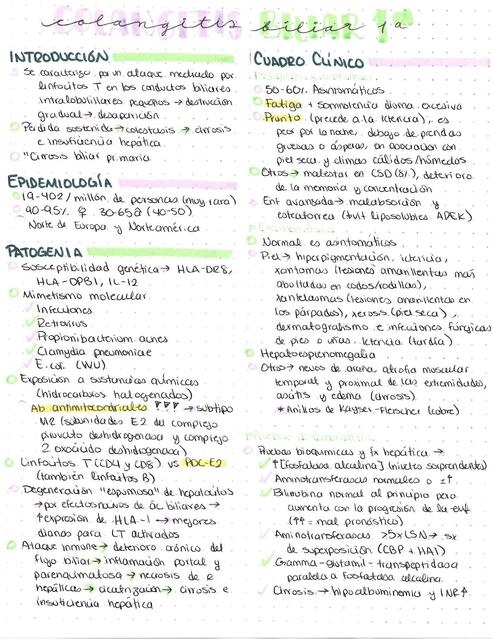 colangitis biliar 1ª
INTRODUCCIÓN
Se caracteriza por un ataque mediado por
linfocitos T en los conductos biliares
intralobulillares pequeños → destrucción
gradual → desaparición.
Pérdida sostenida → colestasis → cirrosis
e insuficiencia hepática.
"Cirrosis biliar primaria
EPIDEMIOLOGÍA
19-402/millón de personas (muy rara)
90-95% ♀ 30-65ª (40-50)
Norte de Europa y Norteamérica.
PATOGENIA
Susceptibilidad genética → HLA-DR8,
HLA-DPB1, IL-12
Mimetismo molecular
Infecciones
Retrovirus
Propionibacterium acnes
Clamydia pneumoniae
E. coli (IVU)
Exposición a sustancias químicas
(hidrocarburos halogenados)
Ab antimitocondriales → subtipo
M2 (subunidades E2 del complejo
piruvato deshidrogenasa y complejo
2 oxoácido deshidrogenasa)
Linfocitos T (CD4 y CD8) vs PDC-E2
(también linfocitos B)
Degeneración "espumosa" de hepatocitos
→ por efectos nocivos de ác biliares →
↑expresión de HLA-1 → mejores
dianas para LT activados
Ataque inmune → deterioro crónico del
flujo biliar → inflamación portal y
parenquimatosa → necrosis de
hepáticas → cicatrización → cirrosis e
insuficiencia hepática
CUADRO CLÍNICO
50-60% Asintomáticos.
Fatiga + somnolencia diurna excesiva
Prurito (precede a la ictericia), es
peor por la noche, debajo de prendas
gruesas o ásperas, en asociación con
piel seca y climas cálidos/húmedos
Otros → malestar en CSD (8%), deterioro
de la memoria y concentración
Enf avanzada → malabsorción y
esteatorrea (↓vit liposolubles. ADEK)
Normal es asintomáticos.
Piel → hiperpigmentación, ictericia,
xantomas (lesiones amarillentas más
abolladas en codos/rodillas),
xantelasmas (lesiones amarillentas en
los párpados), xerosis (piel seca),
dermatografismo e infecciones fúngicas
de pies o uñas. Ictericia (tardía).
Hepatoesplenomegalia
Otros → nevos de araña, atrofia muscular
temporal y proximal de las extremidades,
ascitis y edema (cirrosis).
*Anillos de Kayser-Fleischer (cobre)
Pruebas bioquímicas y fx hepática →
↑[Fosfatasa alcalina] (niveles sorprendentes)
Aminotransferasas normales o ±↑
Bilirrubina normal al principio pero
aumenta con la progresión de la enf
(↑↑ = mal pronóstico)
Aminotransferasas >5xLSN → sx
de superposición (CBP + HAI)
Gamma-glutamil-transpeptidasa
paralela a fosfatasa alcalina.
Cirrosis → hipoalbuminemia y INR↑